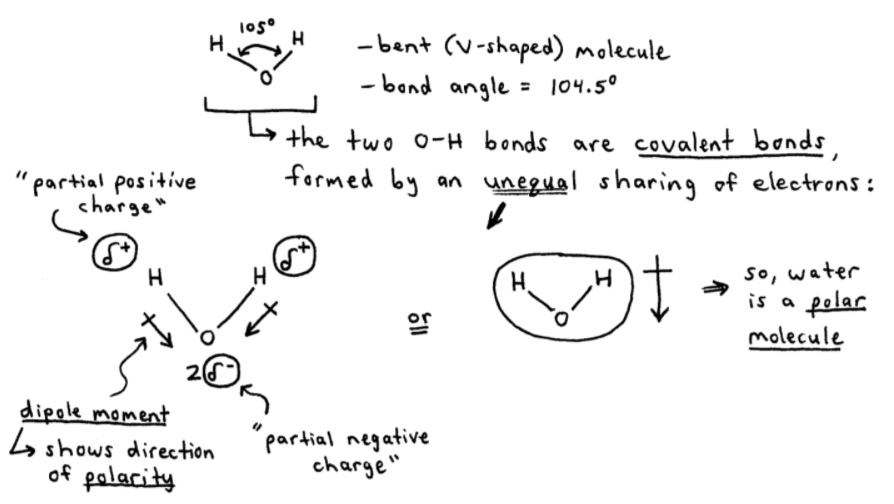 105°
H H
O
- bent (V-shaped) molecule
- bond angle = 104.5°
the two O-H bonds are covalent bonds,
formed by an unequal sharing of electrons:
"partial positive
charge"
δ+ δ+
H H
O
2δ-
or
H H
O
so, water
is a polar
molecule
dipole moment
shows direction
of polarity
"partial negative
charge"